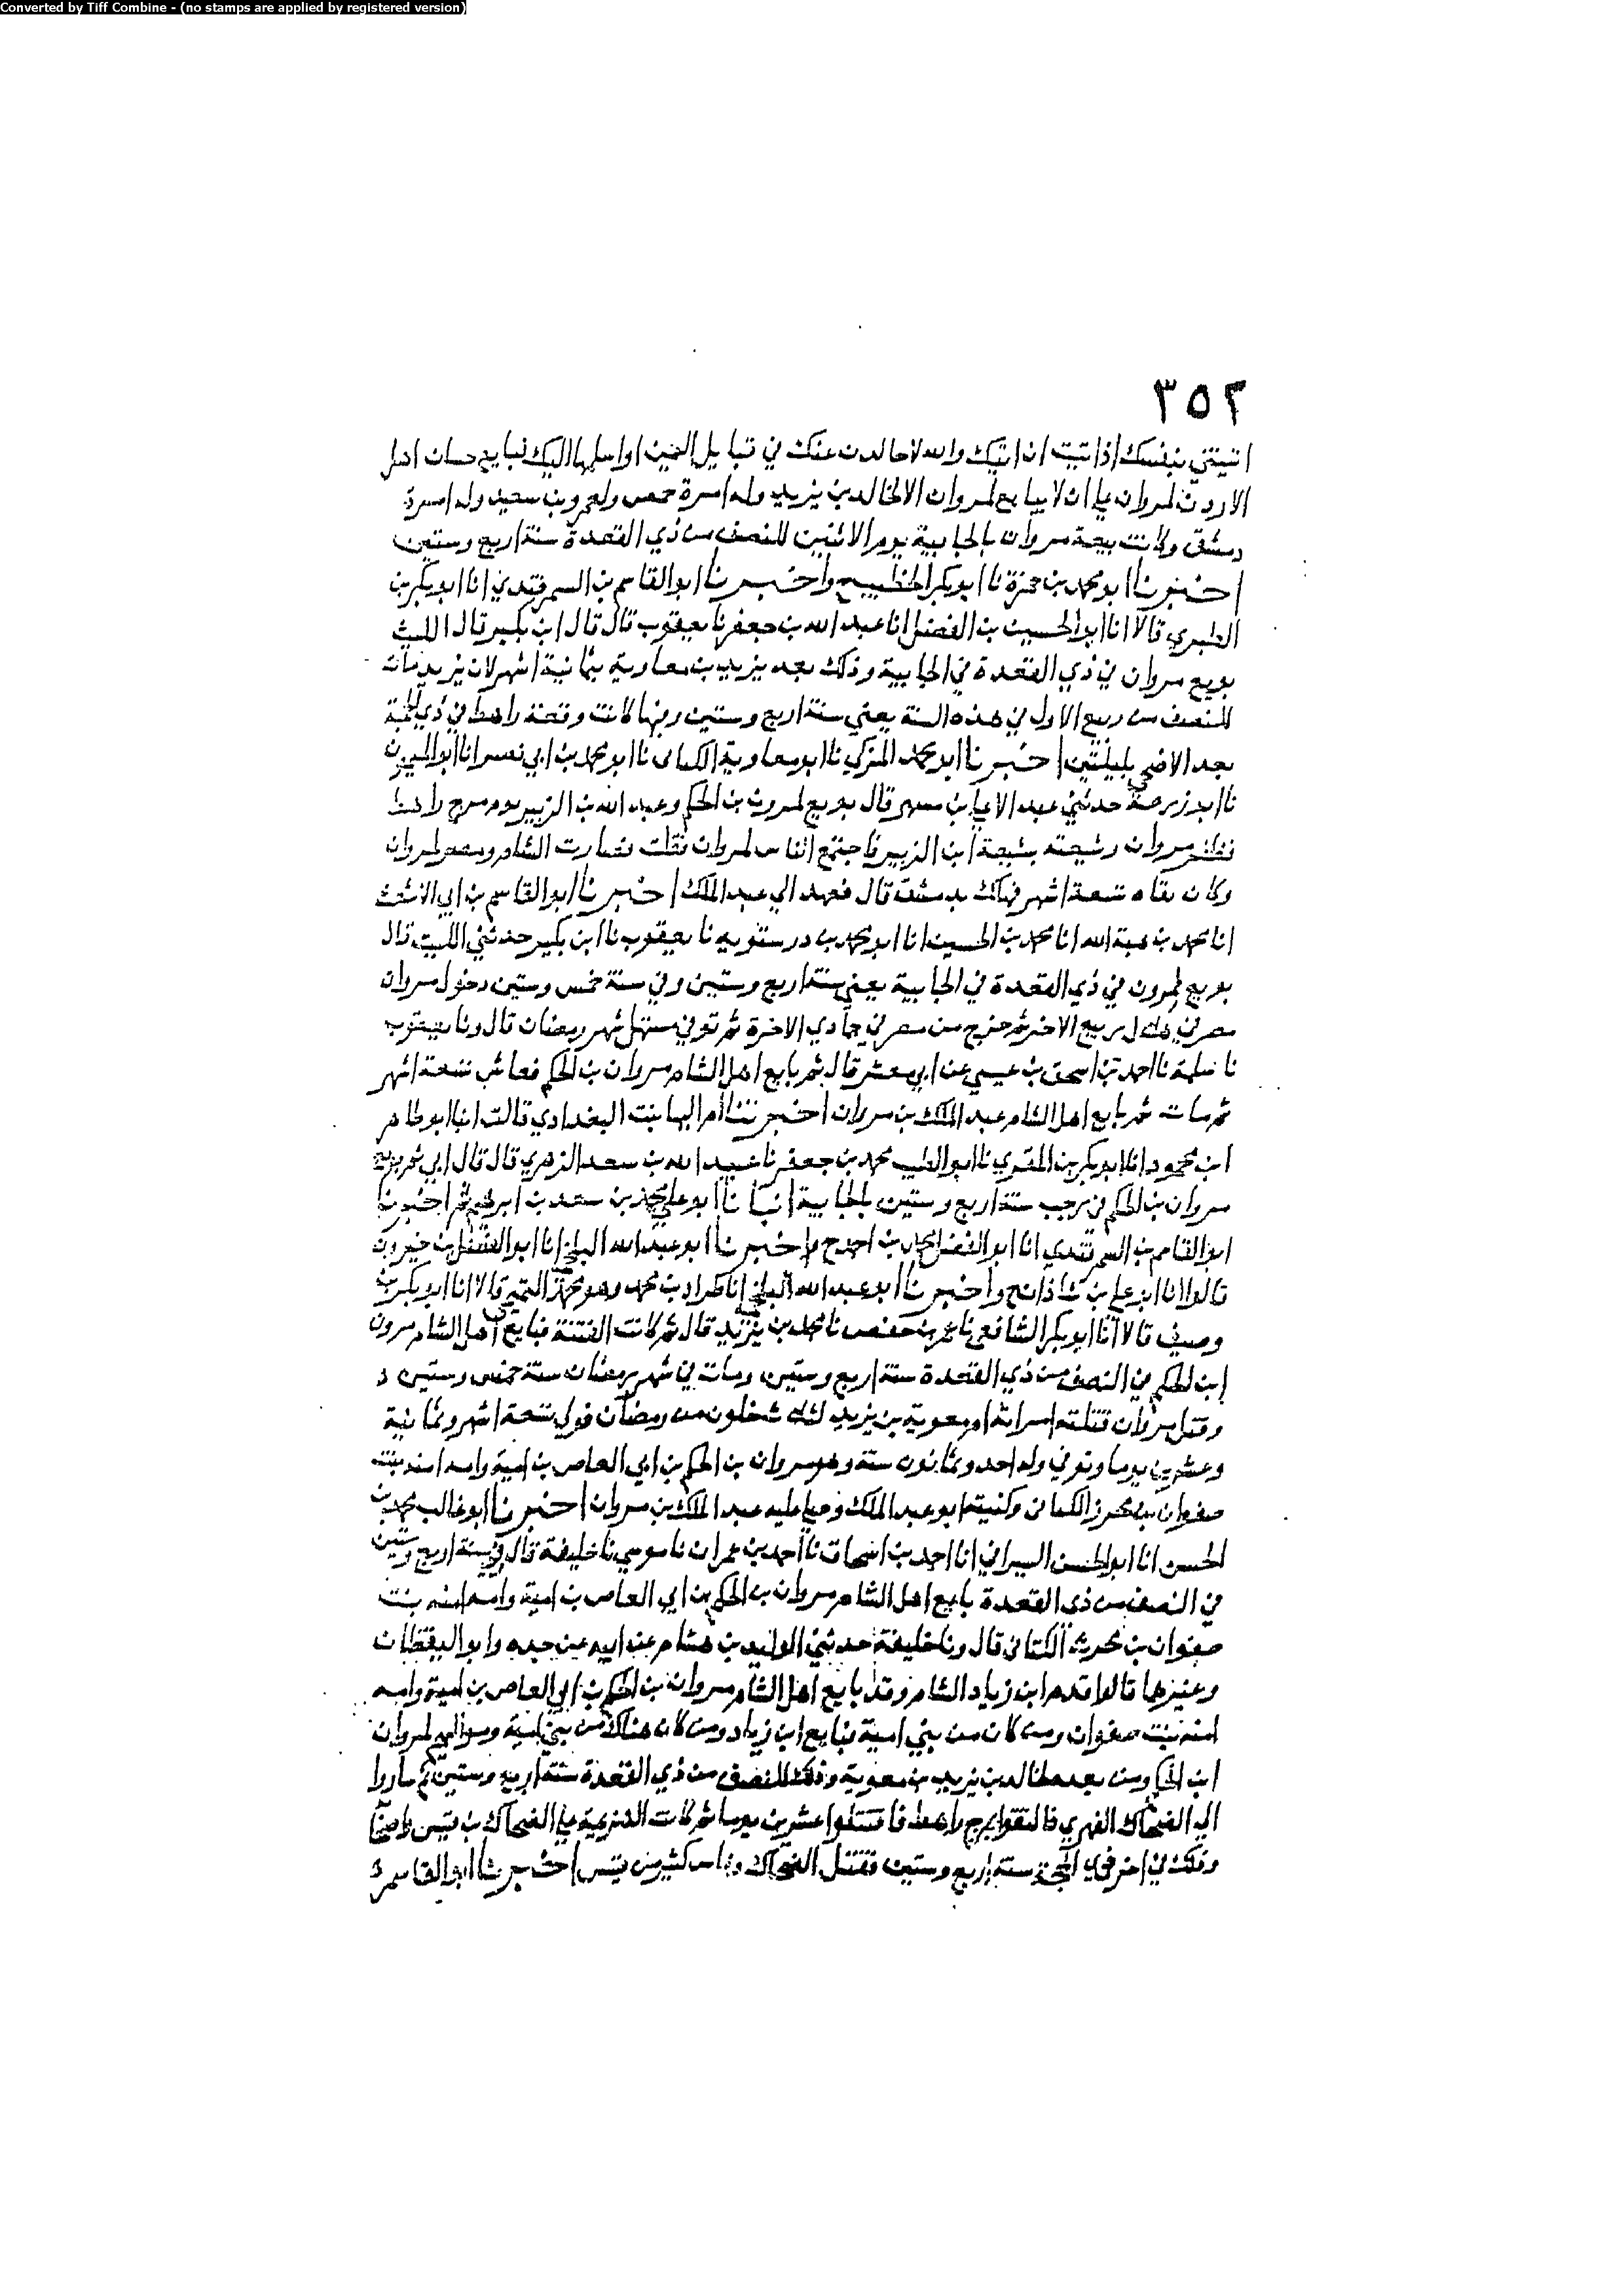 Converted by Tiff Combine - (no stamps are applied by registered version)
٣٥٢
اتيتني بنفسك اذا تبت ان اتيك والله لاحالدن عنك في قبايل اليمن او اسلمها اليك فبايع حسان اهل
الاردن لمروان علي ان لا يبايع لمروان الا لخالد بن يزيد وله امرة حمص ولعمرو بن سعيد وله امرة
دمشق وكانت بيعة مروان بالجابية يوم الاثنين للنصف من ذي القعدة سنة اربع وستين
اخبرنا ابو محمد بن حمزة نا ابو بكر الخطيب ح واخبرنا ابو القاسم بن السمرقندي انا ابو بكر بن
الطبري قالا انا ابو الحسين بن الفضل انا عبد الله بن جعفر نا يعقوب قال قال ابن بكير قال الليث
بويع مروان في ذي القعدة في الجابية وذلك بعد يزيد بن معاوية بثمانية اشهر لان يزيد مات
للنصف من ربيع الاول في هذه السنة يعني سنة اربع وستين وفيها كانت وقعة راهط في ذي الحجة
بعد الاضحى بليلتين اخبرنا ابو محمد المزكي نا ابو معاوية الكتاني نا ابو محمد بن ابي نصر انا ابو الميمون
نا ابو زرعة حدثني عبد الاعلي بن مسهر قال بويع لمرون بن الحكم وعبد الله بن الزبير يوم مرج راهط
مروان وشيعته بشيعة ابن الزبير فاجتمع الناس لمروان فقلت فصارت الشام ومصر لمروان
وكان بقاه تسعة اشهر فهلك بدمشق قال فعهد الي عبد الملك اخبرنا ابو القاسم بن ابي الاشعث
انا محمد بن هبة الله انا محمد بن الحسين انا ابو محمد بن درستويه نا يعقوب نا ابن بكير حدثني الليث قال
بويع لمرون في ذي القعدة في الجابية يعني سنة اربع وستين وفي سنة خمس وستين دخول مروان
مصر في هلال ربيع الاخر ثم خرج من مصر في جمادي الاخرة ثم توفي مستهل شهر رمضان قال ونا يعقوب
نا سلمة نا احمد بن اسحق بن عيسي عن ابي معشر قال ثم بايع اهل الشام مروان بن الحكم فعاش تسعة اشهر
ثم مات ثم بايع اهل الشام عبد الملك بن مروان اخبرتنا ام البها بنت البغدادي قالت انبا ابو طاهر
ابن محمود انا ابو بكر بن المقري نا ابو الطيب محمد بن جعفر نا عبيد الله بن سعد الزهري قال قال ابي ثم بويع
مروان بن الحكم في رجب سنة اربع وستين بالجابية انبانا ابو علي محمد بن سعد بن ابرهيم ثم اخبرنا
ابو القاسم بن السمرقندي انا ابو الفضل احمد بن احمد ح واخبرنا ابو عبد الله البلخي انا ابو الفضل بن خيرون
قالوا انا ابو علي بن شاذان ح واخبرنا ابو عبد الله البلخي انا طراد بن محمد وهو محمد التميمي قالا انا ابو بكر بن
وصيف قالا انا ابو بكر الشافعي نا عمر بن حفص نا محمد بن يزيد قال ثم كانت الفتنة فبايع اهل الشام مرون
ابن الحكم في النصف من ذي القعدة سنة اربع وستين ومات في شهر رمضان سنة خمس وستين
وقتل مروان قتلته امراته ام معوية بن يزيد لثلث خلون من رمضان فولي تسعة اشهر وثمانية
وعشرين يوما وتوفي وله احد وثمانون سنة وهو مروان بن الحكم بن ابي العاص بن امية وامه امنه بنت
صفوان بن محرز الكناني وكنيته ابو عبد الملك وصلي عليه عبد الملك بن مروان اخبرنا ابو غالب محمد بن
الحسن انا ابو الحسن السيرافي انا احمد بن اسحاق نا احمد بن عمران نا موسي نا خليفة قال وفي سنة اربع وستين
في النصف من ذي القعدة بايع اهل الشام مروان بن الحكم بن ابي العاص بن امية وامه امنه بنت
صفوان بن محرث الكناني قال ونا خليفة حدثني الوليد بن هشام عن ابيه عن جده وابو اليقظان
وغيرهما قالوا قدم ابن زياد الشام وقد بايع اهل الشام مروان بن الحكم بن ابي العاص بن امية وامه
امنه بنت صفوان ومن كان من بني امية فبايع ابن زياد ومن كان هناك من بني امية ومواليهم لمروان
ابن الحكم ومن بعده لخالد بن يزيد بن معوية وذلك للنصف من ذي القعدة سنة اربع وستين ثم ساروا
الي الضحاك الفهري فالتقوا بمرج راهط فاقتتلوا عشرين يوما ثم كانت الهزيمة علي الضحاك بن قيس واصحابه
وذلك في اخر ذي الحجة سنة اربع وستين فقتل الضحاك وناس كثير من قيس اخبرنا ابو القاسم